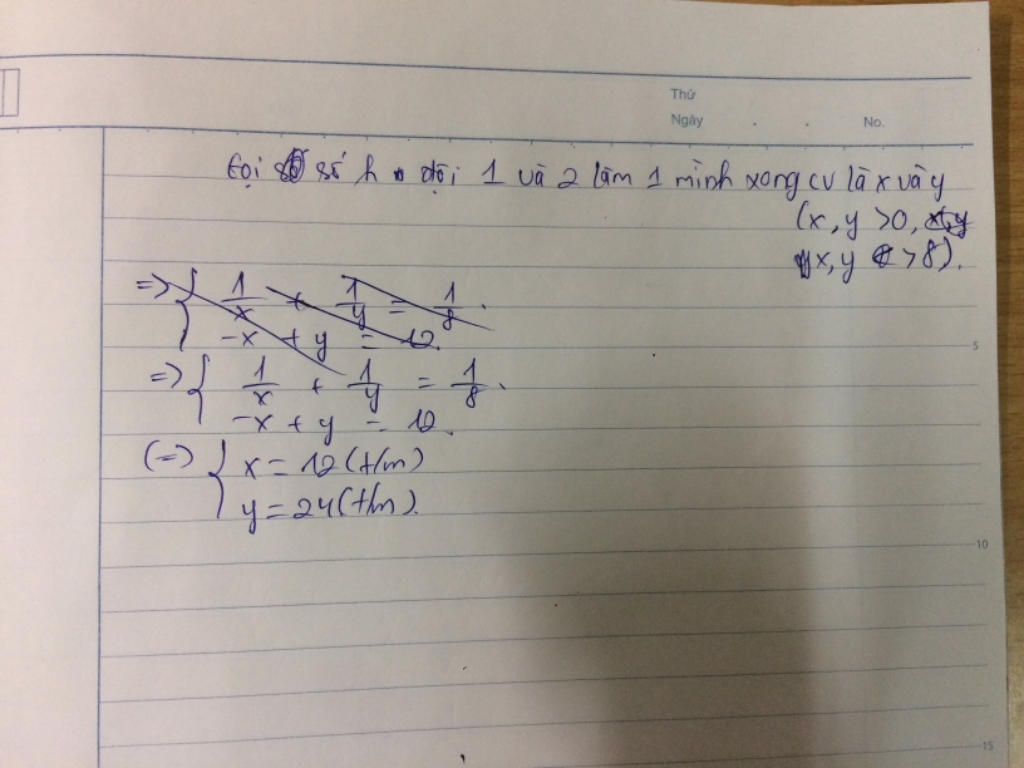 Thứ
Ngày . . No.
Gọi số h đội 1 và 2 làm 1 mình xong cv là x và y
(x, y >0,
x, y >8).
=> { 1/x + 1/y = 1/8.
-x + y = 12.
=> { 1/x + 1/y = 1/8.
-x + y = 12.
(=) { x = 12 (t/m)
y = 24 (t/m).
5
10
15